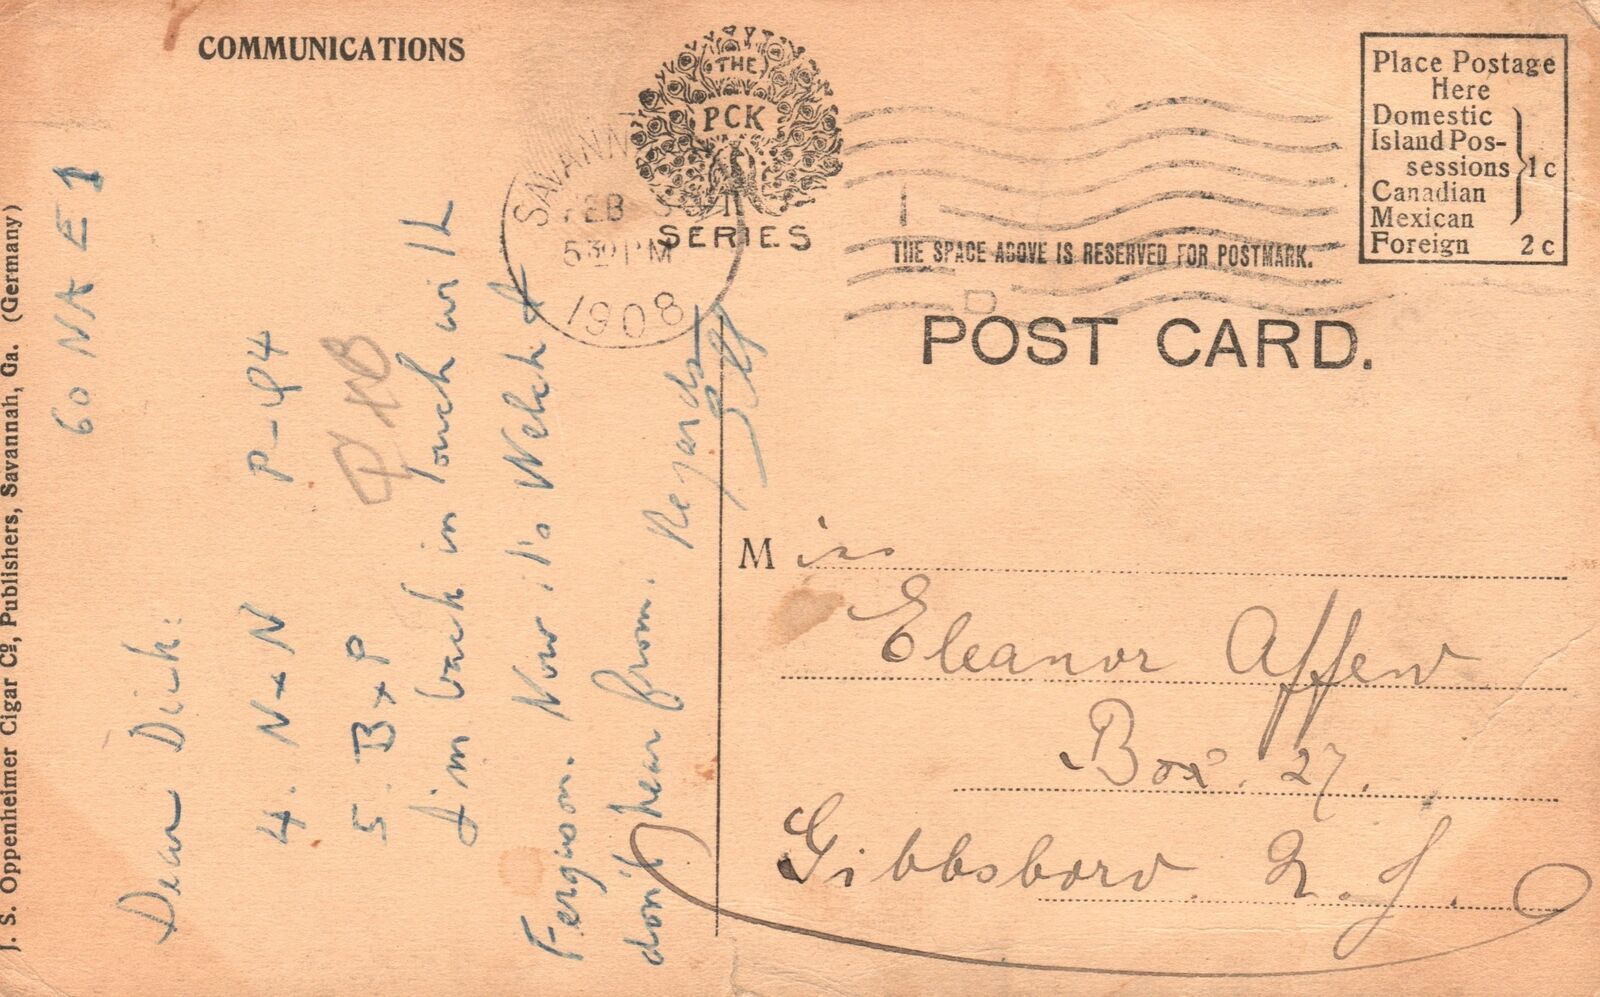 COMMUNICATIONS
THE
PCK
SERIES
SAVANN
FEB
530 PM
1908
Place Postage
Here
Domestic
Island Pos-
sessions
Canadian
Mexican
1 c
Foreign 2 c
THE SPACE ABOVE IS RESERVED FOR POSTMARK.
POST CARD.
J. S. Oppenheimer Cigar Co., Publishers, Savannah, Ga. (Germany)
60 NA E1
Dear Dick:
4. NxN P-Q4
5. BxP
I'm back in touch with
Ferguson. Now it's Welch I
don't hear from. Regards
Jeff
Miss
Eleanor Affew
Box. 27.
Gibbsboro N. J.